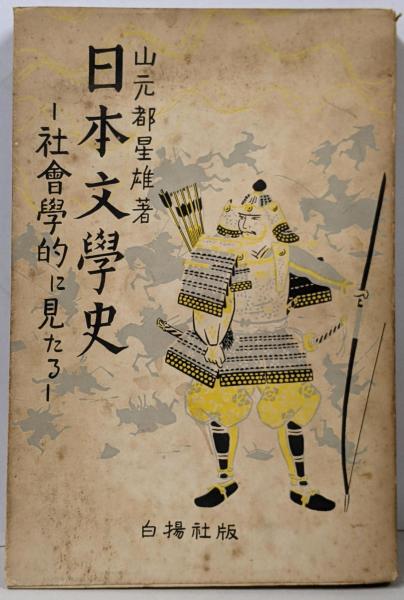 山元都星雄著
日本文學史
－社會學的に見たる－
白揚社版